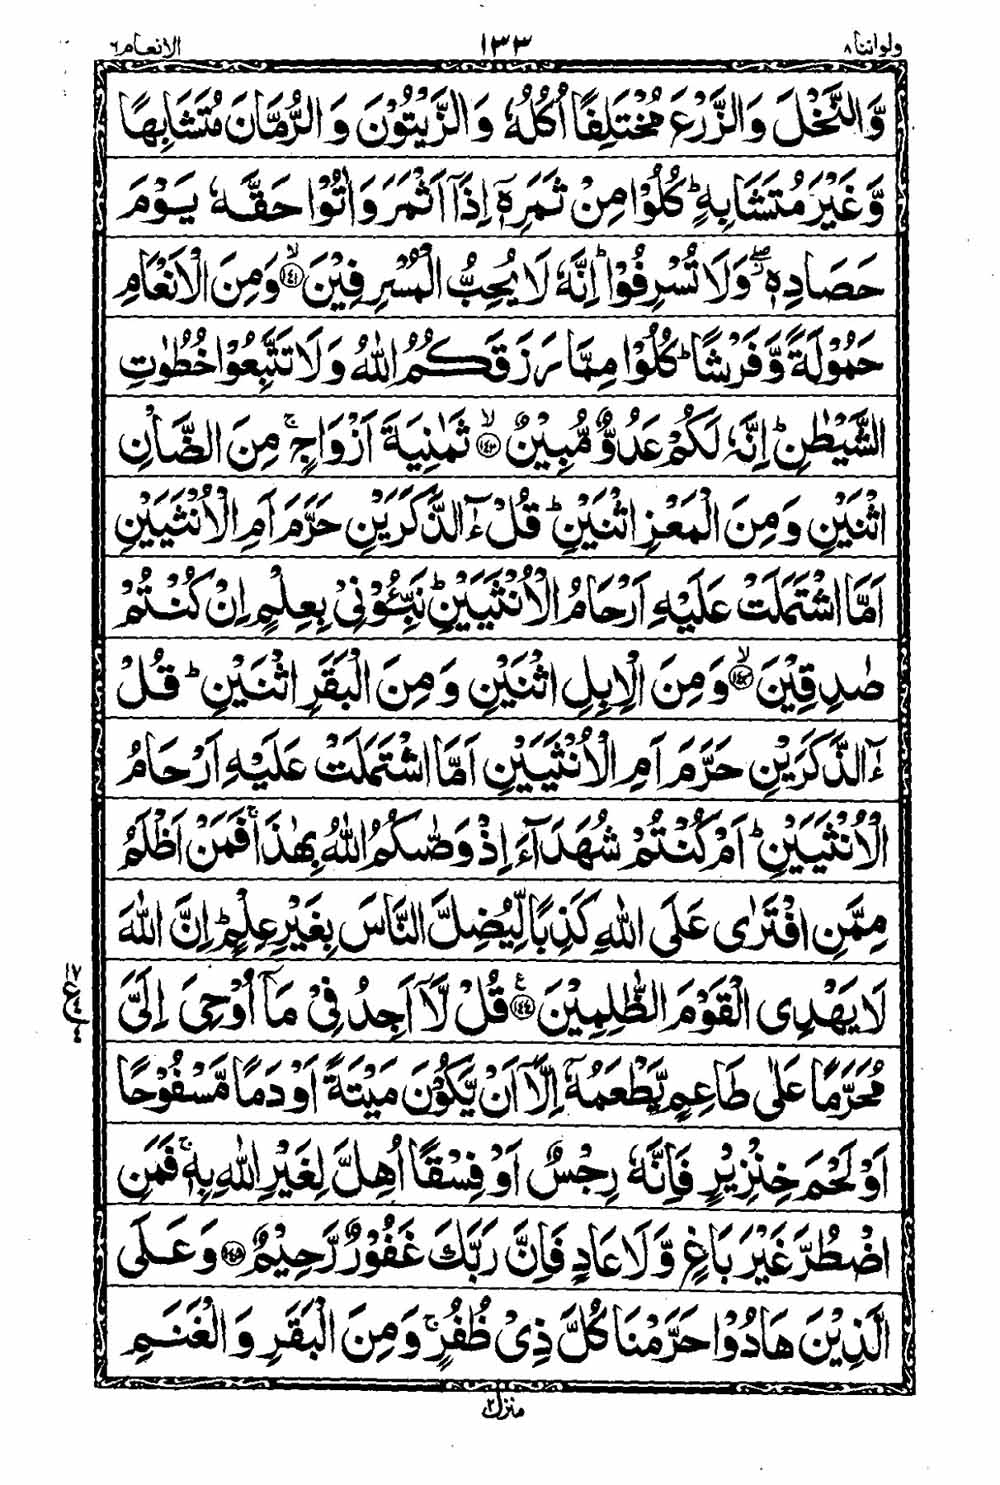 ولواننا ٨ ١٣٣ الانعام ٦
وَّالنَّخْلَ وَالزَّرْعَ مُخْتَلِفًا اُكُلُهٗ وَالزَّيْتُوْنَ وَالرُّمَّانَ مُتَشَابِهًا
وَّغَيْرَ مُتَشَابِهٍ ؕ كُلُوْا مِنْ ثَمَرِهٖۤ اِذَاۤ اَثْمَرَ وَاٰتُوْا حَقَّهٗ يَوْمَ
حَصَادِهٖ ۖ وَلَا تُسْرِفُوْا ؕ اِنَّهٗ لَا يُحِبُّ الْمُسْرِفِيْنَ ۙ﴿١٤١﴾ وَمِنَ الْاَنْعَامِ
حَمُوْلَةً وَّفَرْشًا ؕ كُلُوْا مِمَّا رَزَقَكُمُ اللّٰهُ وَلَا تَتَّبِعُوْا خُطُوٰتِ
الشَّيْطٰنِ ؕ اِنَّهٗ لَكُمْ عَدُوٌّ مُّبِيْنٌ ۙ﴿١٤٢﴾ ثَمٰنِيَةَ اَزْوَاجٍ ۚ مِنَ الضَّاْنِ
اثْنَيْنِ وَمِنَ الْمَعْزِ اثْنَيْنِ ؕ قُلْ ءٰٓالذَّكَرَيْنِ حَرَّمَ اَمِ الْاُنْثَيَيْنِ
اَمَّا اشْتَمَلَتْ عَلَيْهِ اَرْحَامُ الْاُنْثَيَيْنِ ؕ نَبِّـُٔوْنِيْ بِعِلْمٍ اِنْ كُنْتُمْ
صٰدِقِيْنَ ۙ﴿١٤٣﴾ وَمِنَ الْاِبِلِ اثْنَيْنِ وَمِنَ الْبَقَرِ اثْنَيْنِ ؕ قُلْ
ءٰٓالذَّكَرَيْنِ حَرَّمَ اَمِ الْاُنْثَيَيْنِ اَمَّا اشْتَمَلَتْ عَلَيْهِ اَرْحَامُ
الْاُنْثَيَيْنِ ؕ اَمْ كُنْتُمْ شُهَدَآءَ اِذْ وَصّٰىكُمُ اللّٰهُ بِهٰذَا ۚ فَمَنْ اَظْلَمُ
مِمَّنِ افْتَرٰى عَلَى اللّٰهِ كَذِبًا لِّيُضِلَّ النَّاسَ بِغَيْرِ عِلْمٍ ؕ اِنَّ اللّٰهَ
لَا يَهْدِى الْقَوْمَ الظّٰلِمِيْنَ ﴿١٤٤﴾ع قُلْ لَّاۤ اَجِدُ فِيْ مَاۤ اُوْحِيَ اِلَيَّ
مُحَرَّمًا عَلٰى طَاعِمٍ يَّطْعَمُهٗۤ اِلَّاۤ اَنْ يَّكُوْنَ مَيْتَةً اَوْ دَمًا مَّسْفُوْحًا
اَوْ لَحْمَ خِنْزِيْرٍ فَاِنَّهٗ رِجْسٌ اَوْ فِسْقًا اُهِلَّ لِغَيْرِ اللّٰهِ بِهٖ ۚ فَمَنِ
اضْطُرَّ غَيْرَ بَاغٍ وَّلَا عَادٍ فَاِنَّ رَبَّكَ غَفُوْرٌ رَّحِيْمٌ ﴿١٤٥﴾ وَعَلَى
الَّذِيْنَ هَادُوْا حَرَّمْنَا كُلَّ ذِيْ ظُفُرٍ ۚ وَمِنَ الْبَقَرِ وَالْغَنَمِ
منزل ٢